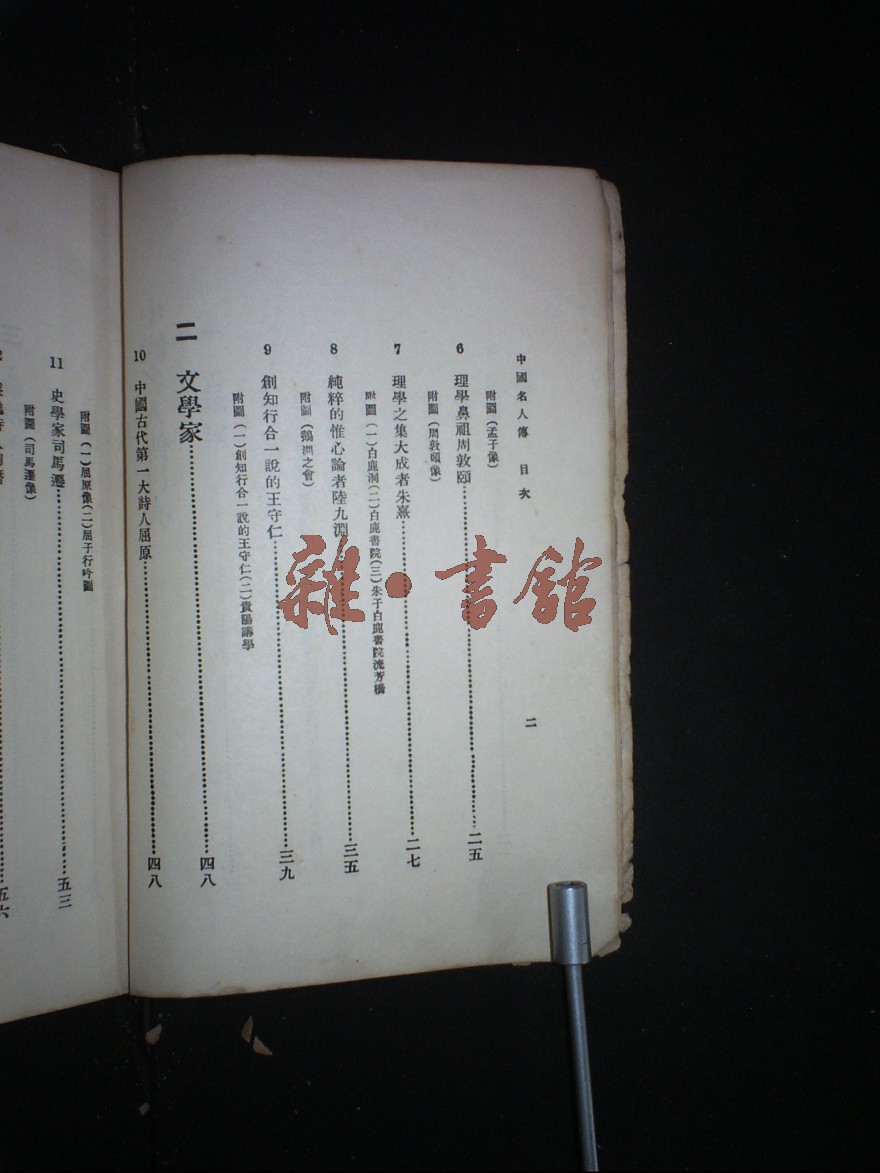 中國名人傳 目次 二
附圖(孟子像)
6 理學鼻祖周敦頤……二五
附圖(周敦頤像)
7 理學之集大成者朱熹……二七
附圖(一)白鹿洞(二)白鹿書院(三)朱子白鹿書院流芳橋
8 純粹的惟心論者陸九淵……三五
附圖(鵝湖之會)
9 創知行合一說的王守仁……三九
附圖(一)創知行合一說的王守仁(二)貴陽講學
二 文學家……四八
10 中國古代第一大詩人屈原……四八
附圖(一)屈原像(二)屈子行吟圖
11 史學家司馬遷……五三
附圖(司馬遷像)
五六
雜·書館